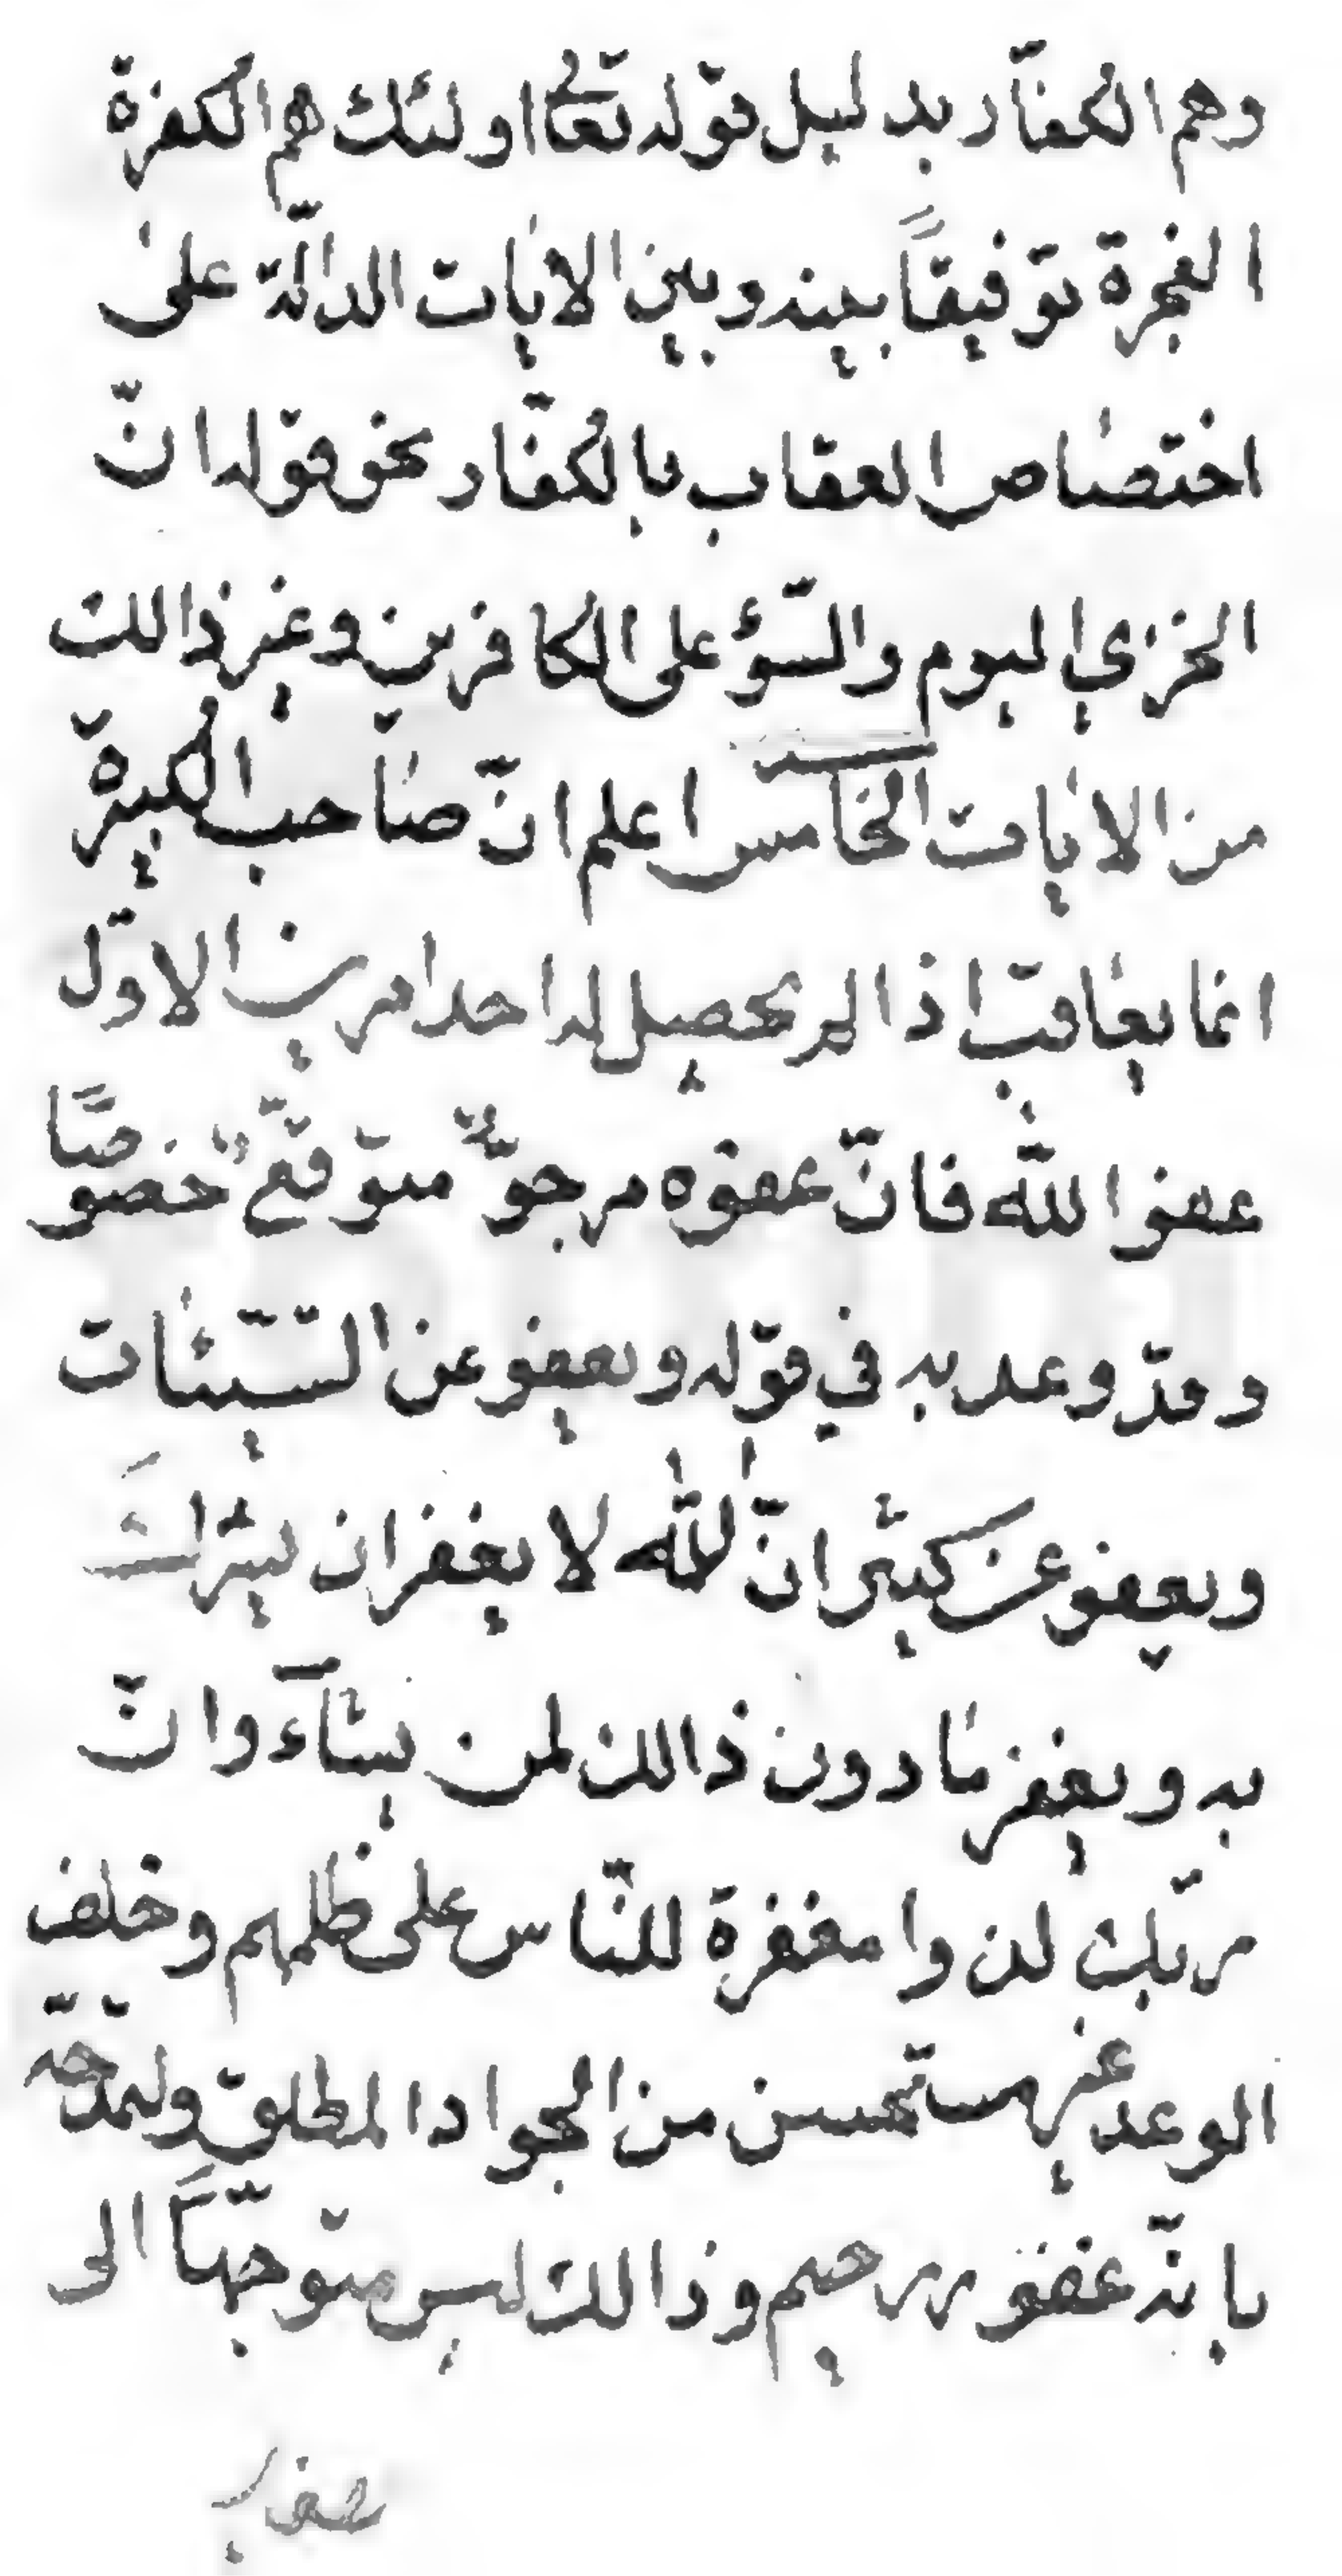 وهم الكفّار بدليل قوله تعالى اولئك هم الكفرة
الفجرة توفيقاً بينه وبين الايات الدالّة على
اختصاص العقاب بالكفّار نحو قوله انّ
الخزي اليوم والسّوء على الكافرين وغير ذالك
من الايات الخامس اعلم انّ صاحب الكبيرة
انما يعاقب اذا لم يحصل له احد امرين الاوّل
عفو الله فانّ عفوه مرجوّ متوقّع خصوصًا
وقد وعد به في قوله ويعفو عن السّيّئات
ويعفو عن كثير انّ الله لا يغفر ان يشرك
به ويغفر مادون ذالك لمن يشآء وانّ
ربّك لذوا مغفرة للنّاس على ظلمهم وخلف
الوعد غير مستحسن من الجواد المطلق ولتمدّحه
بانّه غفور رحيم وذالك ليس متوجّهاً الى